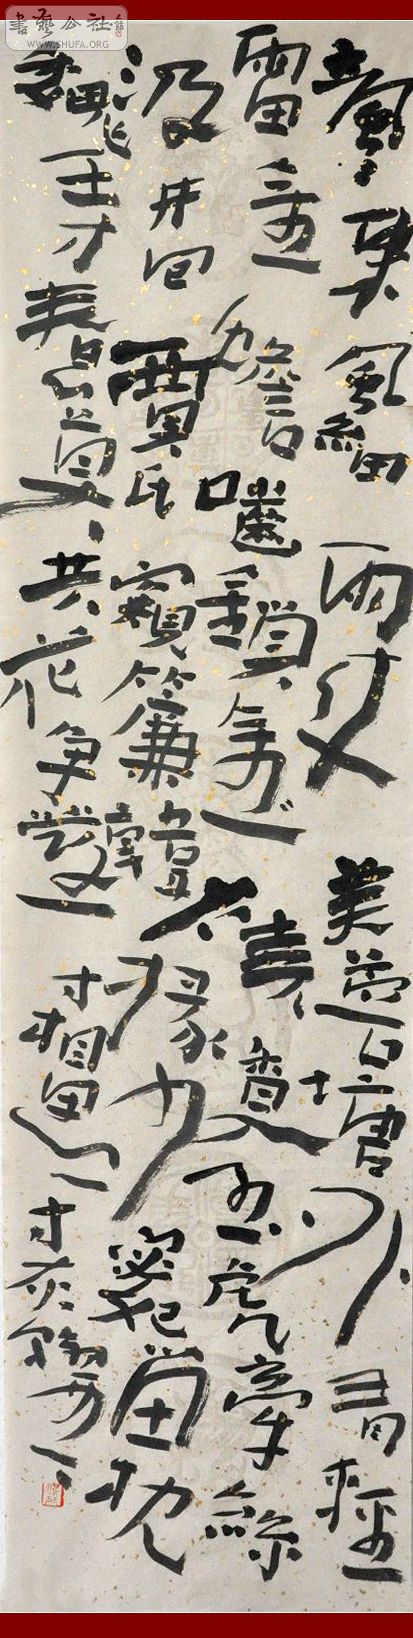 書藝公社
WWW.SHUFA.ORG
颯颯東風細雨來芙蓉塘外有輕
雷金蟾齧鎖燒香入玉虎牽絲
汲井回賈氏窺簾韓掾少宓妃留枕
魏王才春心莫共花爭發一寸相思一寸灰